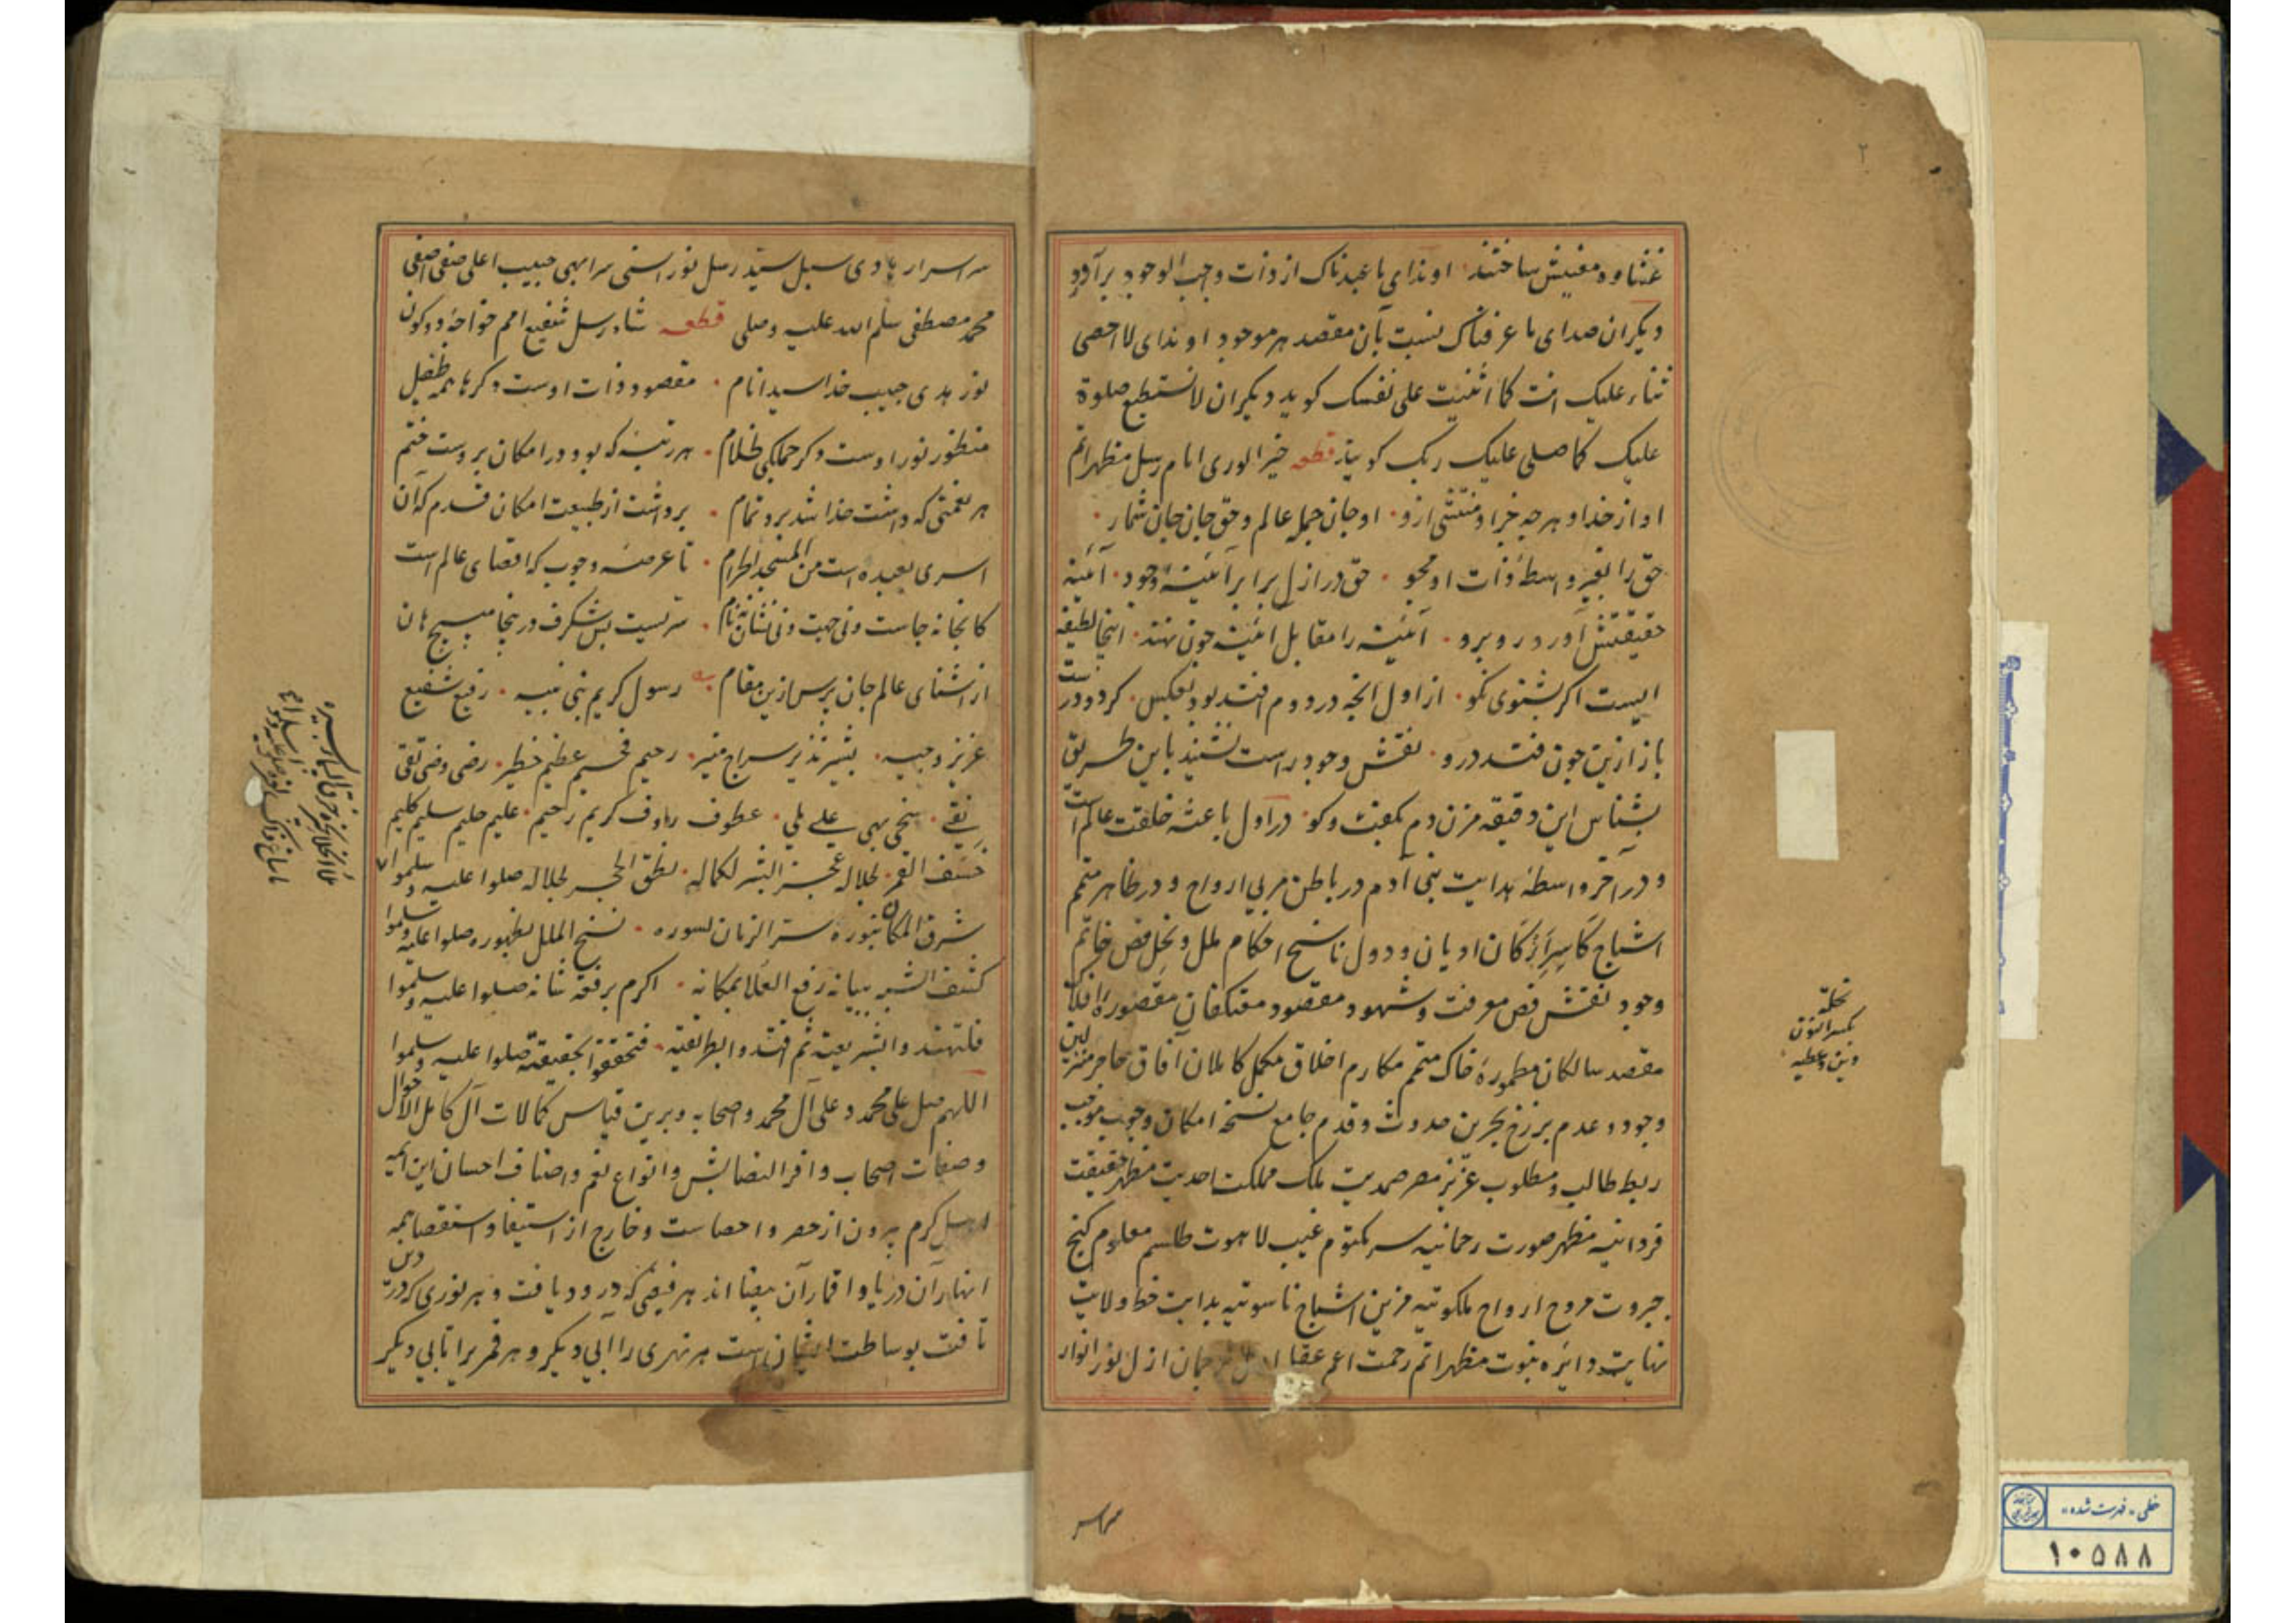 ۲
ساختند اوندای ما عبدناک از ذات واجب الوجود برآورد
دیکران صدای ما عرفناک نسبت بآن مقصد هر موجود اوندای لا احصی
ثناء علیک انت کما اثنیت علی نفسک کوید دیکران لا نستطیع صلوة
علیک کما صلی علیک ربک کویند قطعه خیر الوری امام رسل مظهر اتم
او از خدا و هرچه جز او منتشی ازو اوجان جمله عالم و حق جان جان شمار
حق را بغیر واسطهٔ ذات او مجو حق در ازل برابر آئینهٔ وجود آئینه
حقیقتش آورد روبرو آئینه را مقابل آئینه چون نهند اینجا لطیفه
ایست اکر بشنوی نکو از اول آنچه در دوم افتد بود بعکس کردد درست
باز ازین چون فتد درو نقش وجود راست نشیند باین طریق
بشناس این دقیقه مزن دم بکفت وکو در اول باعث خلقت عالم است
و در آخر واسطهٔ هدایت بنی آدم در باطن مربی ارواح و در ظاهر متمم
اشباح کاسر ارکان ادیان و دول ناسخ احکام ملل و نحل فص خاتم
وجود نقش فص معرفت و شهود مقصود معتکفان مقصورهٔ افلاک
مقصد سالکان مطمورهٔ خاک متمم مکارم اخلاق مکمل کاملان آفاق حاجز منزلتین
وجود و عدم برزخ بحرین حدوث و قدم جامع نسخهٔ امکان و وجوب موجب
ربط طالب و مطلوب عزیز مصر صمدیت ملک مملکت احدیت مظهر حقیقت
فردانیه مظهر صورت رحمانیه سر مکتوم غیب لاهوت طلسم معلوم کنج
جبروت مروح ارواح ملکوتیه مزین اشباح ناسوتیه بدایت خط ولایت
نهایت دائره نبوت مظهر اتم رحمت اعم ازل نور انوار
نحلة
بکسر النون
دین و عطیه
سر اسرار هادی سبل سید رسل نور اسنی سر ابهی حبیب اعلی صفی اصفی
محمد مصطفی سلم الله علیه وصلی قطعه شاه رسل شفیع امم خواجهٔ دو کون
نور هدی حبیب خدا سید انام مقصود ذات اوست دکرها همه طفیل
منظور نور اوست دکر جملکی ظلام هر رتبهٔ که بود در امکان بروست ختم
هر نعمتی که داشت خدا شد برو تمام برداشت از طبیعت امکان قدم که آن
اسری بعبده است من المسجد الحرام تا عرصه وجوب که اقصای عالم است
کانجا نه جاست ونی جهت ونی نشان نه نام سریست بس شکرف درینجا مپیچ هان
از آشنای عالم جان پرس ازین مقام رسول کریم نبی نبیه رفیع شفیع
عزیز وجیه بشیر نذیر سراج منیر رحیم فخیم عظیم خطیر رضی وضی تقی
نقی سخی بهی علی ملی عطوف رؤف کریم رحیم علیم حلیم سلیم کلیم
خسف القمر لجلاله عجز البشر لکماله نطق الحجر لجلاله صلوا علیه وسلموا
شرف المکان بنوره ستر الزمان لسوره نسخ الملل لظهوره صلوا علیه وسلموا
کشف الشبه ببیانه رفع العلا بمکانه اکرم برفعة شانه صلوا علیه وسلموا
فلتهتدوا لشریعته ثم اقتدوا لطریقته فتحققوا لحقیقته صلوا علیه وسلموا
اللهم صل علی محمد وعلی آل محمد واصحابه وبرین قیاس کمالات آل کامل الاحوال
وصفات اصحاب وافر النصابش وانواع نعم واصناف احسان این ائمه
کرم بیرون از حصر و احصاست وخارج از استیفا و استقصا همه
انهار آن دریا و اقمار آن بیضا اند هر فیضی که درو دیافت و هر نوری که
تافت بوساطت ایشان است هر نهری را آبی دیکر و هر قمریرا تابی دیکر
خطی - فهرست شده
۱۰۵۸۸